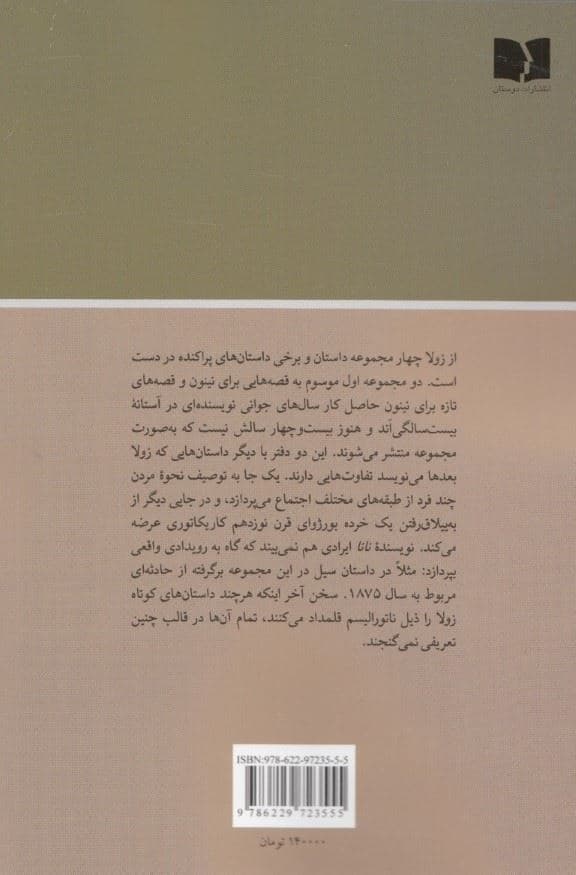 انتشارات دوستان
از زولا چهار مجموعه داستان و برخی داستان‌های پراکنده در دست
است. دو مجموعه اول موسوم به قصه‌هایی برای نینون و قصه‌های
تازه برای نینون حاصل کار سال‌های جوانی نویسنده‌ای در آستانهٔ
بیست‌سالگی‌اند و هنوز بیست‌وچهار سالش نیست که به‌صورت
مجموعه منتشر می‌شوند. این دو دفتر با دیگر داستان‌هایی که زولا
بعدها می‌نویسد تفاوت‌هایی دارند. یک جا به توصیف نحوهٔ مردن
چند فرد از طبقه‌های مختلف اجتماع می‌پردازد، و در جایی دیگر از
به‌ییلاق‌رفتن یک خرده بورژوای قرن نوزدهم کاریکاتوری عرضه
می‌کند. نویسندهٔ نانا ایرادی هم نمی‌بیند که گاه به رویدادی واقعی
بپردازد: مثلاً در داستان سیل در این مجموعه برگرفته از حادثه‌ای
مربوط به سال ۱۸۷۵. سخن آخر اینکه هرچند داستان‌های کوتاه
زولا را ذیل ناتورالیسم قلمداد می‌کنند، تمام آن‌ها در قالب چنین
تعریفی نمی‌گنجند.
ISBN:978-622-97235-5-5
9 786229 723555
۱۴۰۰۰۰ تومان